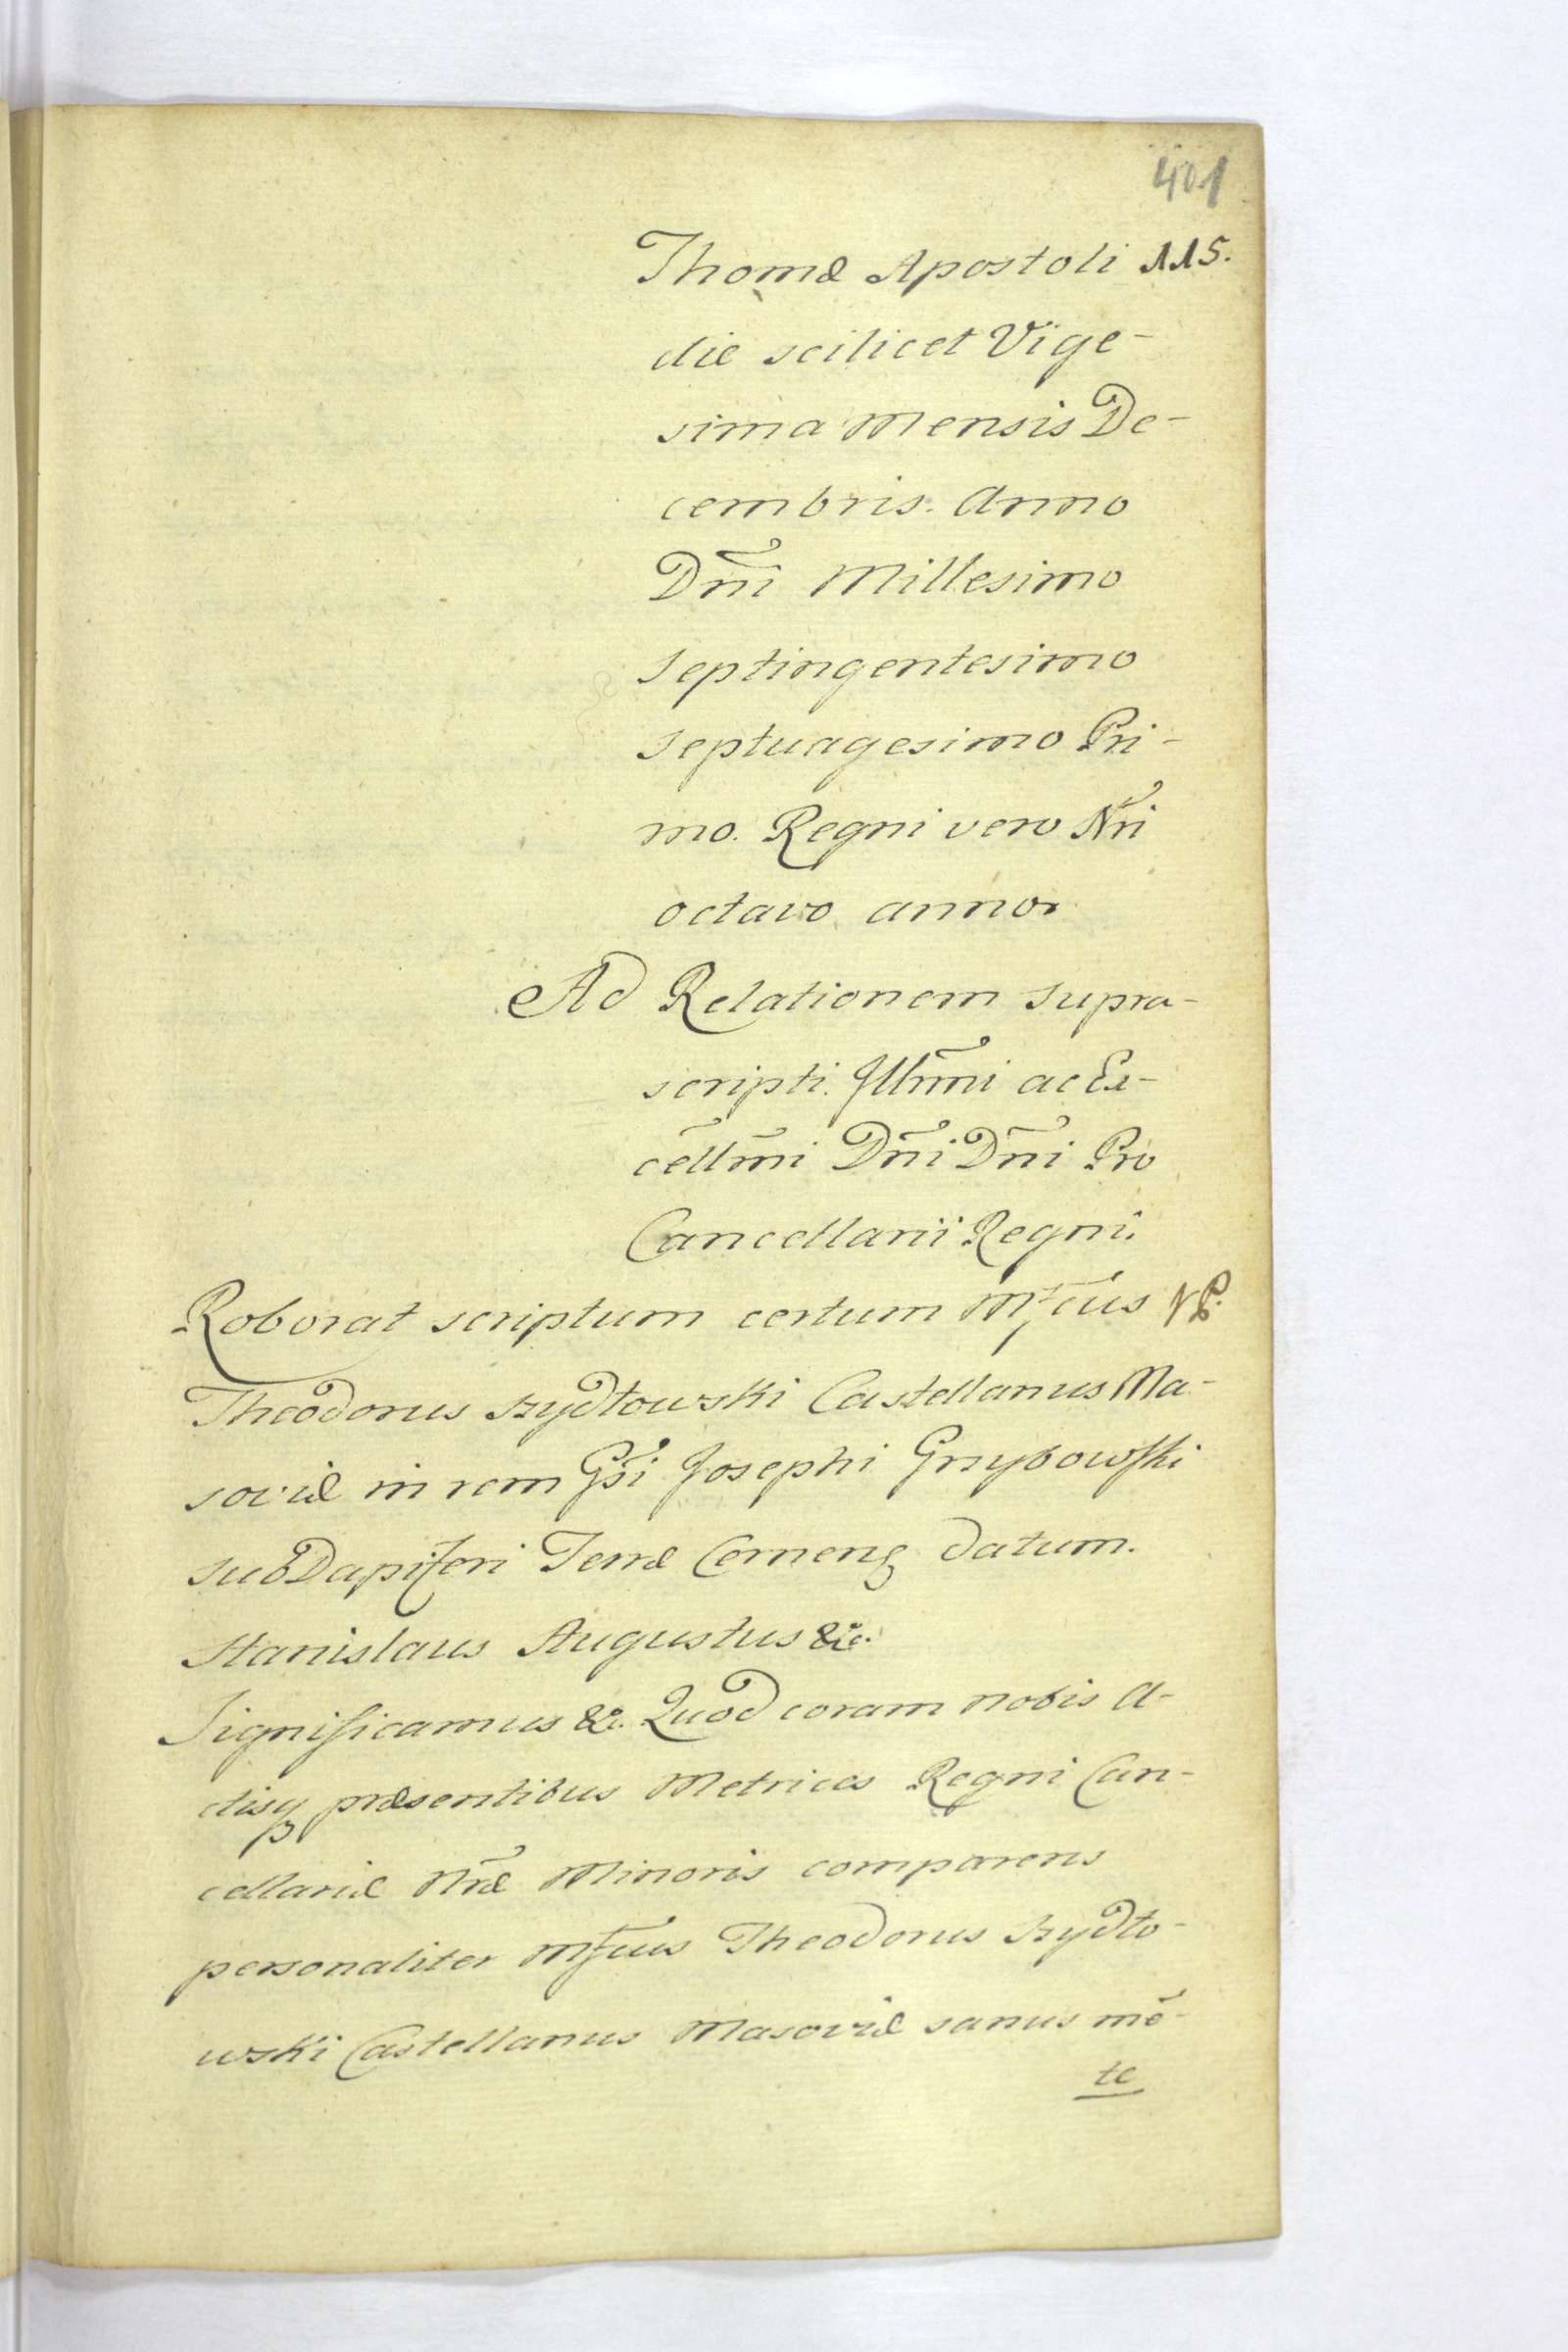 401
Thomæ Apostoli 115.
die scilicet Vige-
sima Mensis De-
cembris. Anno
Dñi Millesimo
Septingentesimo
Septuagesimo Pri-
mo. Regni vero Nri
octavo anno
Ad Relationem supra-
scripti. Illmi ac Ex-
cellmi Dñi Dñi Pro
Cancellarii Regni.
Roborat scriptum certum Mfcus
Theodorus Szydłowski Castellanus Ma-
soviæ in rem Gsi Josephi Grzybowski
subDapiferi Terræ Cernens datum.
Stanislaus Augustus &c.
Significamus &c. Quod coram nobis A-
ctisq præsentibus Metrices Regni Can-
cellariæ Nræ Minoris comparens
personaliter Mfcus Theodorus Szydło-
wski Castellanus Masoviæ sanus mē-
te